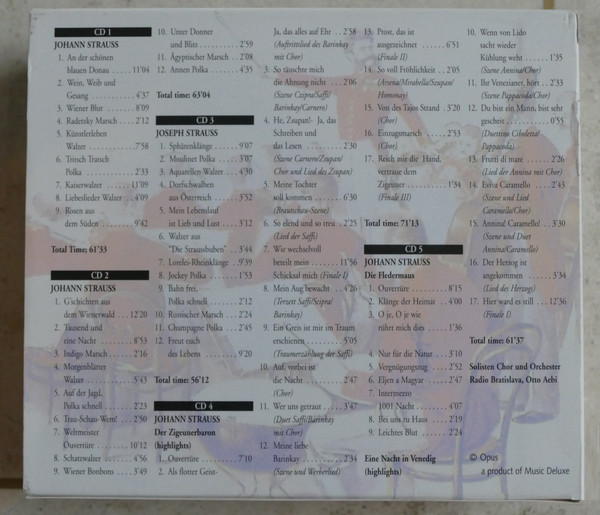 CD 1
JOHANN STRAUSS
1. An der schönen
blauen Donau ..... 11'04
2. Wein, Weib und
Gesang ........ 4'37
3. Wiener Blut ..... 8'09
4. Radetzky Marsch ... 2'12
5. Künstlerleben
Walzer ......... 7'58
6. Tritsch Tratsch
Polka .......... 2'33
7. Kaiserwalzer ..... 11'09
8. Liebeslieder Walzer .. 4'09
9. Rosen aus
dem Süden ....... 9'42
Total Time: 61'33
CD 2
JOHANN STRAUSS
1. G'schichten aus
dem Wienerwald ... 12'20
2. Tausend und
eine Nacht ....... 8'53
3. Indigo Marsch .... 2'16
4. Morgenblätter
Walzer ......... 5'43
5. Auf der Jagd,
Polka schnell ..... 2'23
6. Trau-Schau-Wem! .. 2'50
7. Weltmeister
Ouvertüre ....... 10'12
8. Schatzwalzer ...... 4'56
9. Wiener Bonbons ... 3'49
10. Unter Donner
und Blitz ........ 2'59
11. Ägyptischer Marsch .. 2'08
12. Annen Polka ...... 4'35
Total time: 63'04
CD 3
JOSEPH STRAUSS
1. Sphärenklänge .... 9'07
2. Moulinet Polka .... 3'07
3. Aquarellen Walzer .. 4'30
4. Dorfschwalben
aus Österreich ..... 3'52
5. Mein Lebenslauf
ist Lieb und Lust ... 3'12
6. Walzer aus
"Die Straussbuben" .. 3'44
7. Lorelei-Rheinklänge .. 9'39
8. Jockey Polka ...... 1'53
9. Bahn frei,
Polka schnell ...... 2'12
10. Russischer Marsch .. 2'24
11. Champagne Polka .. 2'45
12. Freut euch
des Lebens ....... 9'20
Total time: 56'12
CD 4
JOHANN STRAUSS
Der Zigeunerbaron
(highlights)
1. Ouvertüre ....... 7'10
2. Als flotter Geist-
Ja, das alles auf Ehr .. 2'58
(Auftrittslied des Barinkay
mit Chor)
3. So täuschte mich
die Ahnung nicht ... 2'06
(Szene Czipra/Saffi/
Barinkay/Carnero)
4. He, Zsupan!- Ja, das
Schreiben und
das Lesen ........ 2'30
(Szene Carnero/Zsupan/
Chor und Lied des Zsupan)
5. Meine Tochter
soll kommen ...... 6'30
(Brautschau-Szene)
6. So elend und so treu .. 2'25
(Lied der Saffi)
7. Wie wechselvoll
beteilt mein ...... 11'56
Schicksal mich (Finale I)
8. Mein Aug bewacht .. 4'26
(Terzett Saffi/Scipra/
Barinkay)
9. Ein Greis ist mir im Traum
erschienen ....... 5'05
(Traumerzählung der Saffi)
10. Auf, vorbei ist
die Nacht ........ 2'47
(Chor)
11. Wer uns getraut .... 3'47
(Duet Saffi/Barinkay
mit Chor)
12. Meine liebe
Barinkay ........ 2'34
(Szene und Werberlied)
13. Prost, das ist
ausgezeichnet ..... 6'51
(Finale II)
14. So voll Fröhlichkeit .. 2'05
(Arsena/Mirabella/Szupan/
Homonay)
15. Von des Tajos Strand . 3'20
(Chor)
16. Einzugsmarsch .... 2'53
(Chor)
17. Reich mir die Hand,
vertraue dem
Zigeuner ......... 1'34
(Finale III)
Total time: 71'13
CD 5
JOHANN STRAUSS
Die Fledermaus
1. Ouvertüre ....... 8'15
2. Klänge der Heimat .. 4'00
3. O je, O je wie
rührt mich dies .... 1'36
4. Nur für die Natur ... 3'10
5. Vergnügungszug ... 2'52
6. Eljen a Magyar .... 2'47
7. Intermezzo
1001 Nacht ...... 4'07
8. Bei uns zu Haus .... 2'19
9. Leichtes Blut ...... 2'24
Eine Nacht in Venedig
(highlights)
10. Wenn von Lido
sacht wieder
Kühlung weht ..... 1'35
(Szene Annina/Chor)
11. Ihr Venezianer, hört .. 2'33
(Szene Pappacoda/Chor)
12. Du bist ein Mann, bist sehr
gescheit .......... 0'55
(Duettino Ciboletta/
Pappacoda)
13. Frutti di mare ..... 2'26
(Lied der Annina mit Chor)
14. Eviva Caramello .... 2'43
(Szene und Lied
Caramello/Chor)
15. Annina! Caramello! .. 3'30
(Szene und Duett
Annina/Caramello)
16. Der Herzog ist
angekommen ..... 3'34
(Lied des Herzogs)
17. Hier ward es still ... 12'36
(Finale I)
Total time: 61'37
Solisten Chor und Orchester
Radio Bratislava, Otto Aebi
© Opus
a product of Music Deluxe